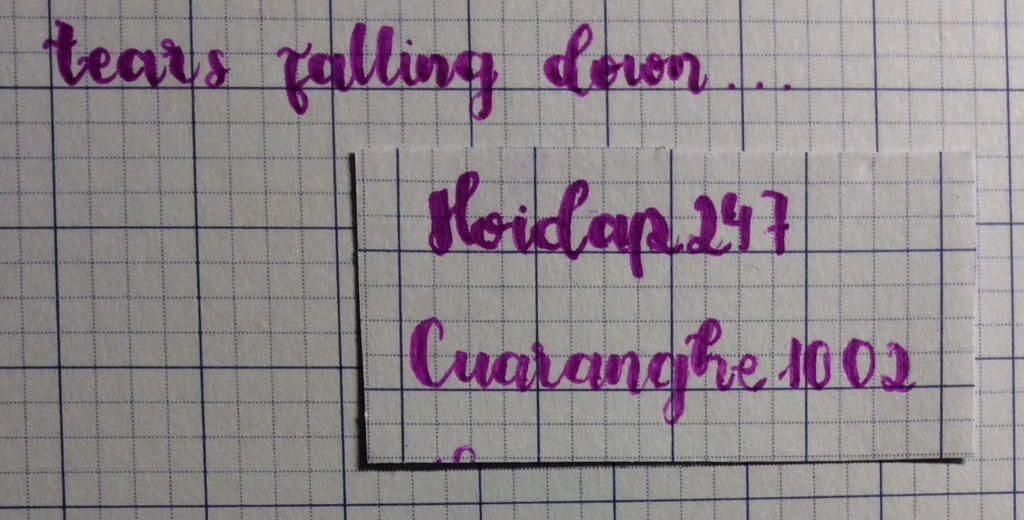 tears falling down...
Hoidap247
Cuaranghe1002